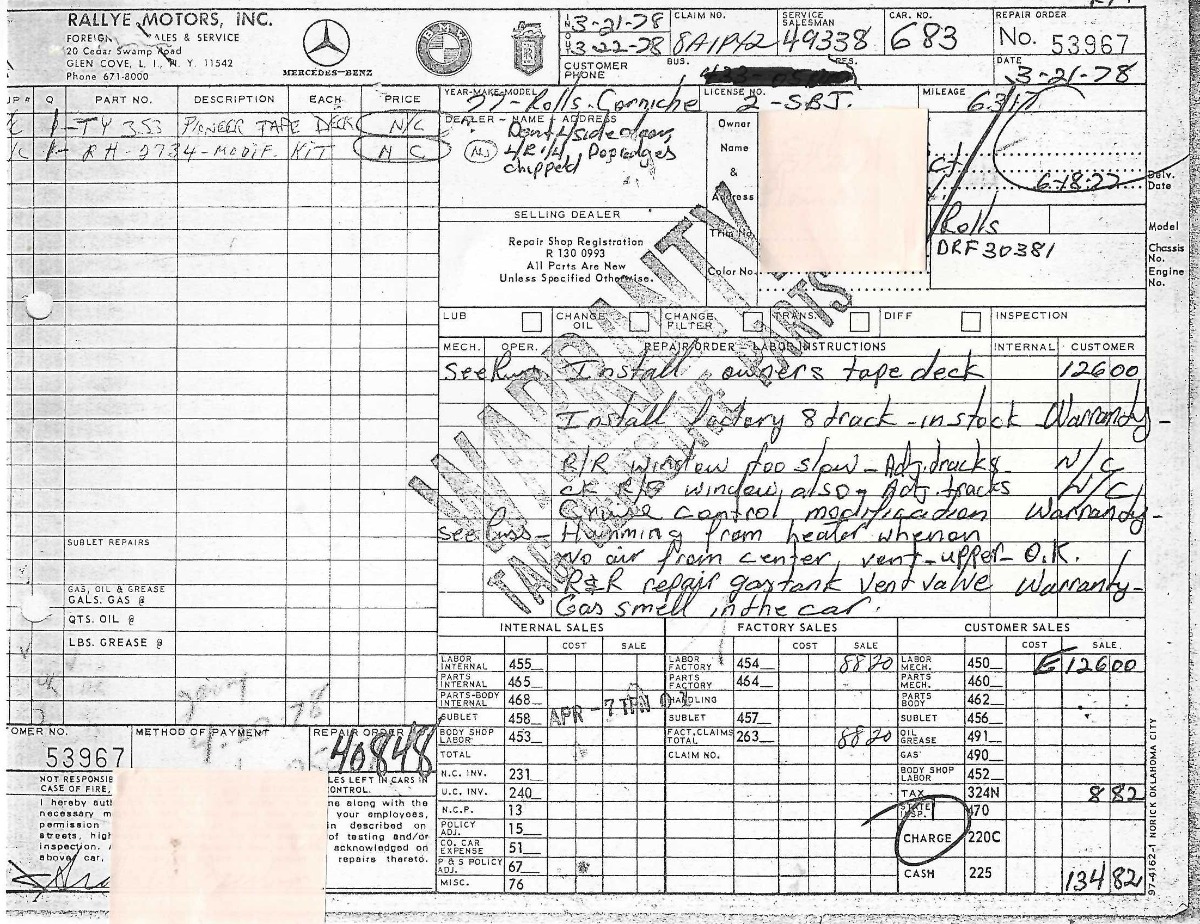 RALLYE MOTORS, INC.
FOREIGN SALES & SERVICE
20 Cedar Swamp Road
GLEN COVE, L. I., N. Y. 11542
Phone 671-8000
MERCEDES-BENZ
BMW
IN 3-21-78
OUT 3-22-78
CLAIM NO.
8A1PY2
SERVICE SALESMAN
49338
CAR. NO.
683
REPAIR ORDER
No. 53967
CUSTOMER PHONE
BUS.
RES.
DATE
3-21-78
Q
PART NO.
DESCRIPTION
EACH
PRICE
1-TY 353 PIONEER TAPE DECK N/C
1-RH-2734-MODIF. KIT N C
YEAR-MAKE-MODEL
77-Rolls-Corniche
LICENSE NO.
2-SBJ.
MILEAGE
DEALER - NAME - ADDRESS
chipped
Owner
Name
&
Address
6-18-77
Delv. Date
SELLING DEALER
Repair Shop Registration
R 130 0993
All Parts Are New
Unless Specified Otherwise.
Trim No.
Color No.
Rolls
Model
DRF30381
Chassis No.
Engine No.
WARRANTY
LUB
CHANGE OIL
CHANGE FILTER
TRANS.
DIFF
INSPECTION
MECH.
OPER.
REPAIR ORDER - LABOR INSTRUCTIONS
INTERNAL
CUSTOMER
Install owners tape deck 12600
Install factory 8 track - in stock Warranty-
R/R window too slow - Adj. tracks- N/C
window, also - Adj. tracks N/C
Cruise control modification Warranty-
Humming from heater when on
No air from center vent-upper- O.K.
R&R repair gas tank vent valve Warranty-
Gas smell in the car.
SUBLET REPAIRS
GAS, OIL & GREASE
GALS. GAS @
QTS. OIL @
LBS. GREASE @
INTERNAL SALES
COST
SALE
FACTORY SALES
COST
SALE
CUSTOMER SALES
COST
SALE
LABOR INTERNAL 455
LABOR FACTORY 454 8820
LABOR MECH. 450 12600
PARTS INTERNAL 465
PARTS FACTORY 464
PARTS MECH. 460
PARTS-BODY INTERNAL 468
HANDLING
PARTS BODY 462
APR - 7
SUBLET 458
SUBLET 457
SUBLET 456
BODY SHOP LABOR 453
FACT. CLAIMS TOTAL 263 8820
OIL GREASE 491
TOTAL
CLAIM NO.
GAS 490
N.C. INV. 231
BODY SHOP LABOR 452
U.C. INV. 240
TAX 324N 882
N.C.P. 13
STATE INSP. 470
POLICY ADJ. 15
CHARGE 220C
CO. CAR EXPENSE 51
P & S POLICY ADJ. 67
CASH 225 13482
MISC. 76
OMER NO.
53967
METHOD OF PAYMENT
REPAIR ORDER
40848
NOT RESPONSIB
CASE OF FIRE,
LES LEFT IN CARS IN
ONTROL.
I hereby aut
necessary m
permission
streets, hig
inspection.
above car.
ne along with the
your employees,
in described on
of testing and/or
acknowledged on
repairs thereto.
97-4162-1 NORICK OKLAHOMA CITY